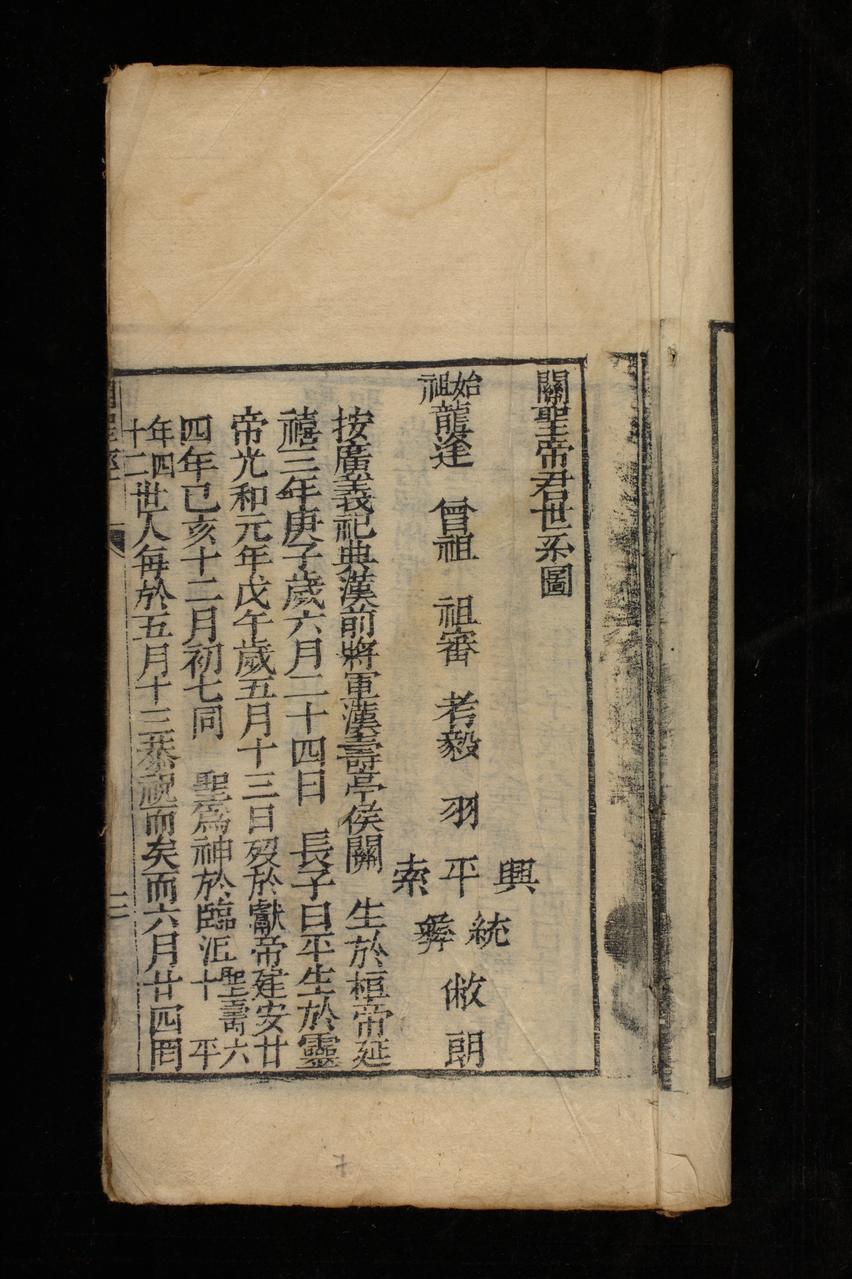 關聖帝君世系圖
始祖龍逢 曾祖 祖審 若毅 羽 平 興 索 統 彝 倣 朗
按廣義祀典漢前將軍漢壽亭侯關 生於桓帝延
禧三年庚子歲六月二十四日 長子曰平生於靈
帝光和元年戊午歲五月十三日歿於獻帝建安廿
四年己亥十二月初七同 聖為神於臨沮聖壽六十 平
年四十二世人每於五月十三恭祝而矣而六月廿四罔
三